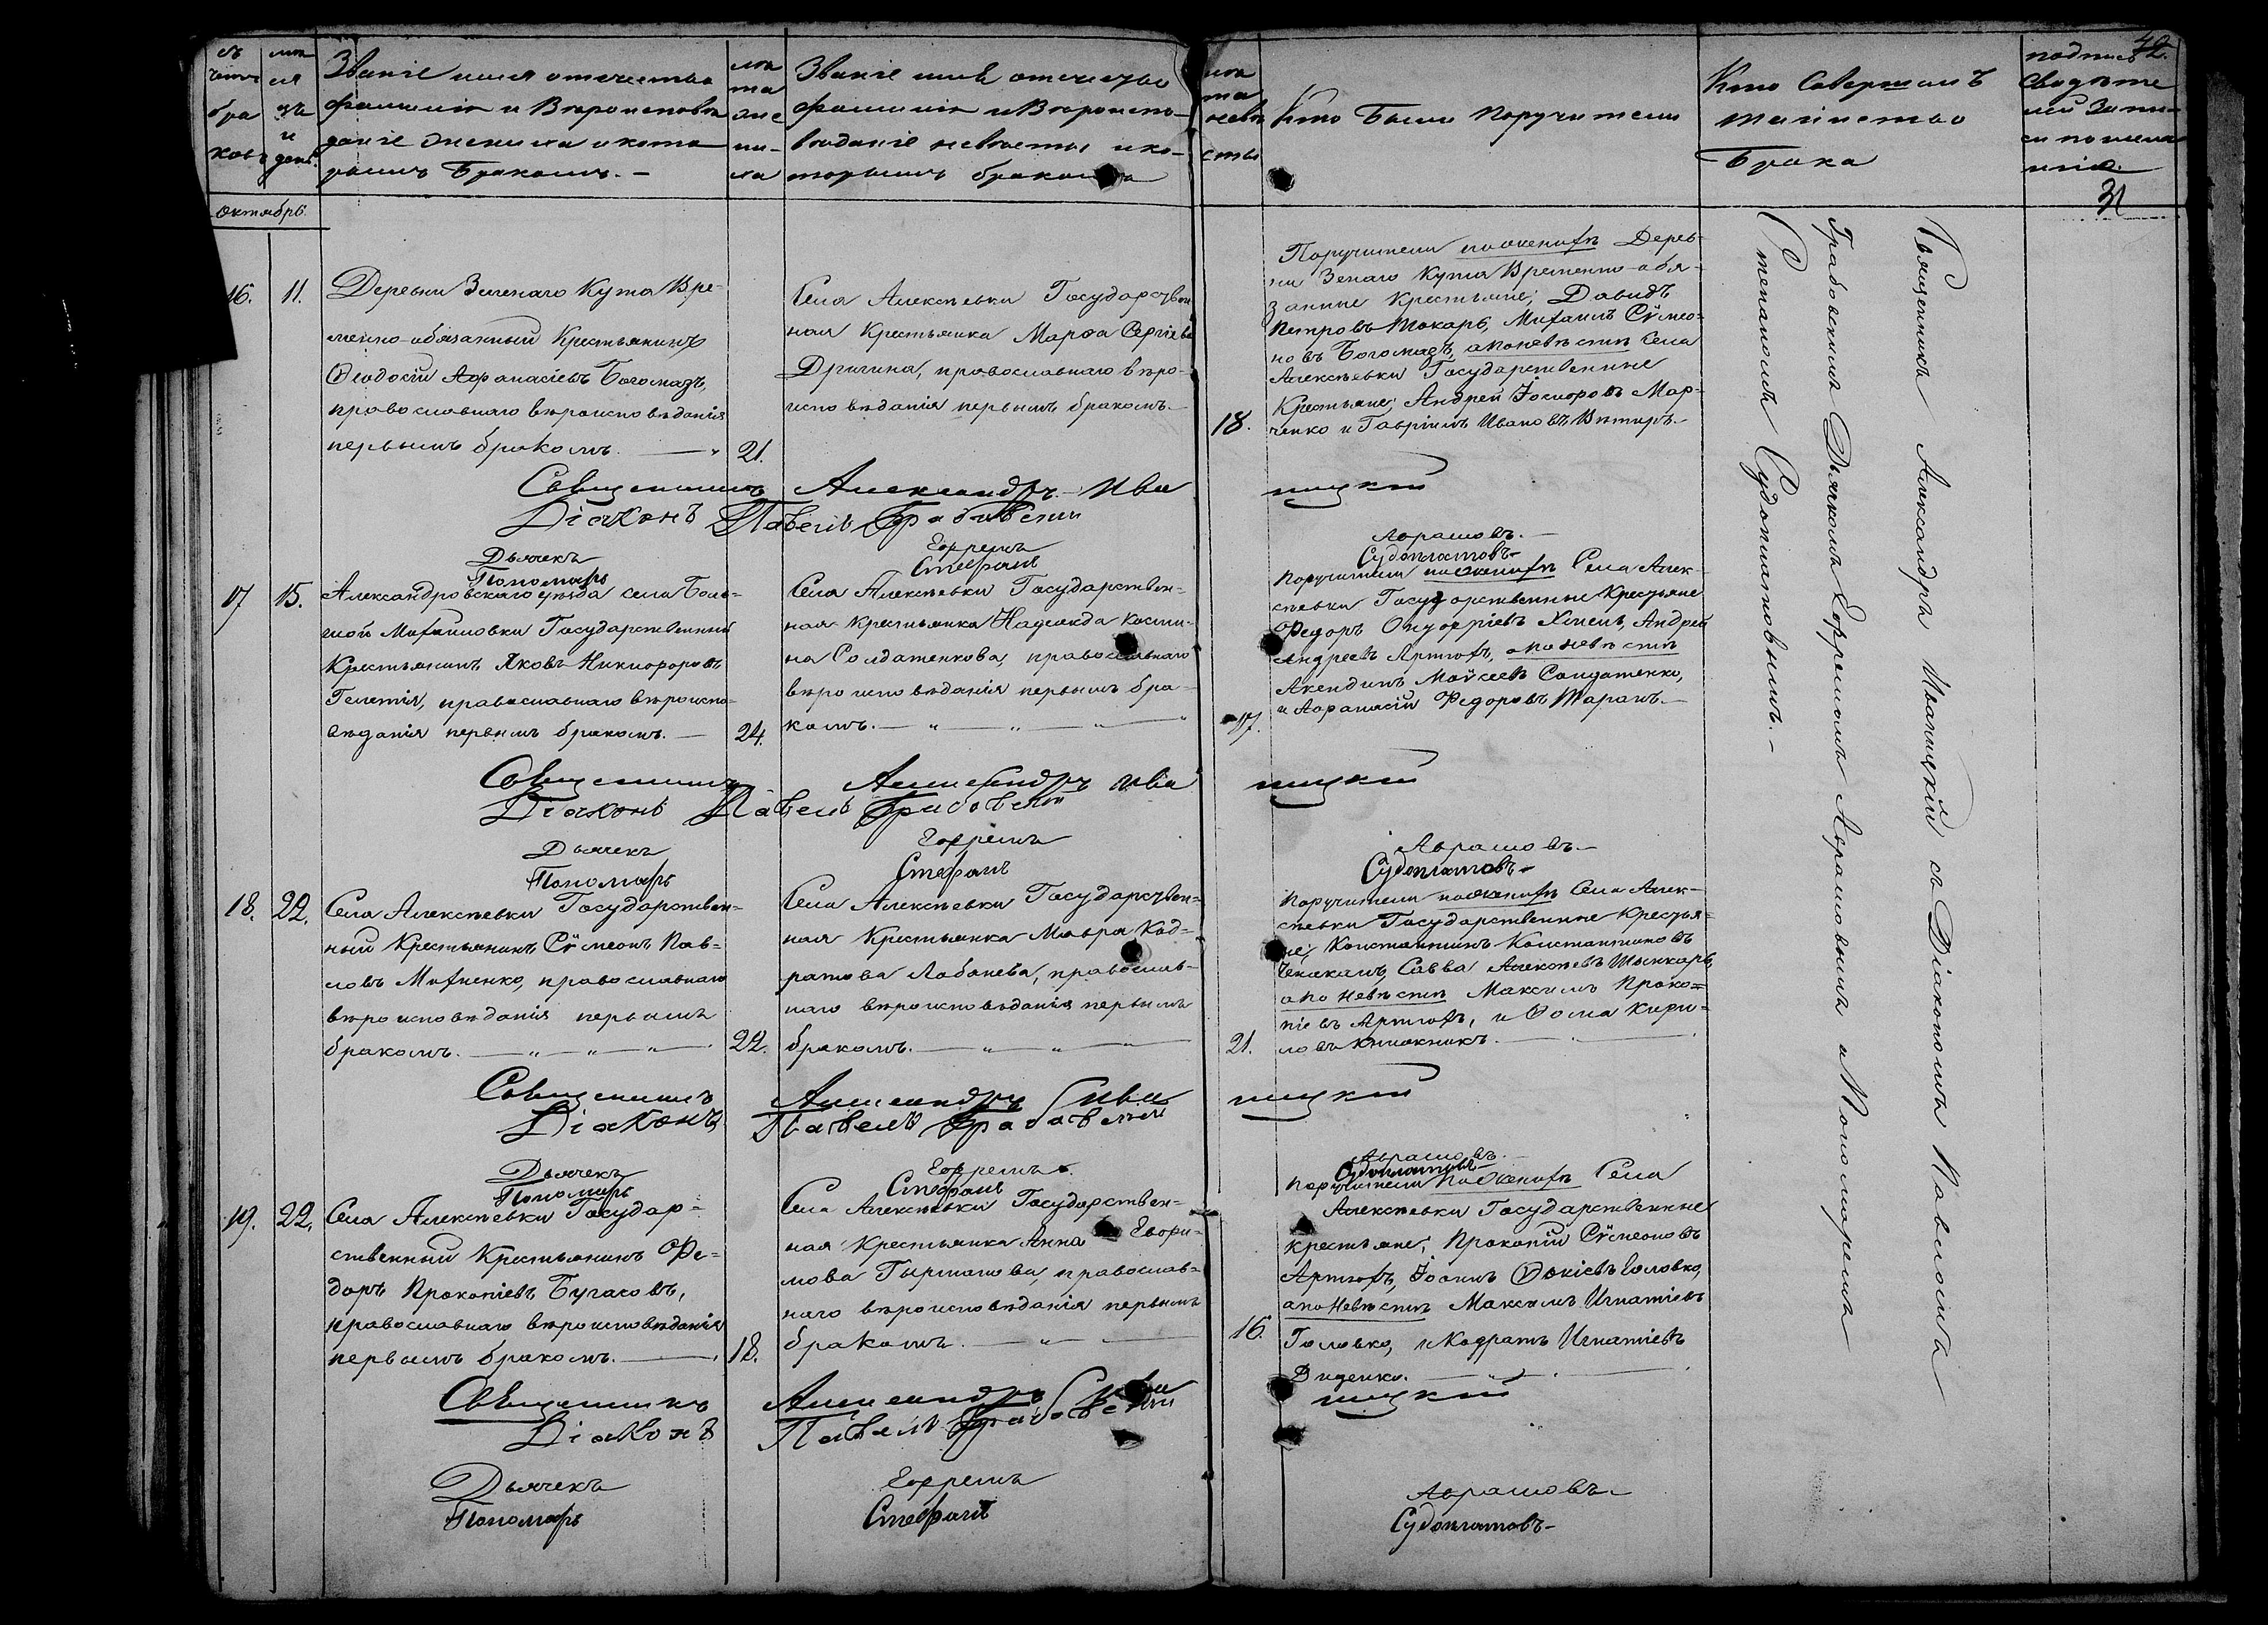 42.
счетъ браковъ
мѣсяцъ и день
Званіе имя отечество
фамилія и Вѣроисповѣ
даніе жениха и кото
рымъ Бракомъ. —
лѣта жениха
Званіе имя отечество
фамилія и Вѣроиспо-
вѣданіе невѣсты и ко-
торымъ бракомъ
лѣта невѣсты
Кто Были Поручители
Кто Совершалъ
таинство
Брака
подпись
Свидѣте
лей Запи-
си по жела
нію.
31
Октябрь.
16.
11.
Деревни Зеленаго Кута Вре-
менно-обязанный Крестьянинъ
Ѳеодосій Афанасіевъ Богомазъ,
православнаго вѣроисповѣданія
первымъ бракомъ. —
21.
Села Алексѣевки Государствен
ная Крестьянка Марѳа Сергіева
Дрыгина, православнаго вѣро-
исповѣданія первымъ бракомъ. —
18.
Поручители по женихѣ Дерев-
ни Зенаго Кута Временно-обя-
занные Крестьяне; Давидъ
Петровъ Токарь, Михаилъ Сѵмео-
новъ Богомазъ, а по невѣстѣ Села
Алексѣевки Государственные
Крестьяне; Андрей Іосифовъ Мар-
ченко и Гавріилъ Ивановъ Вѣтиръ. —
Священникъ Александръ Ива
ницкій
Діаконъ Павелъ Грабовскій
Дьячекъ Ефремъ Аврамовъ. —
Пономарь Стефанъ Судоплатовъ —
17
15.
Александровскаго уѣзда села Боль-
шой Михайловки Государственный
Крестьянинъ Яковъ Никифоровъ
Гелетія, православнаго вѣроиспо-
вѣданія первымъ бракомъ. —
24.
Села Алексѣевки Государствен-
ная Крестьянка Надежда Косми-
на Солдатенкова, православнаго
вѣроисповѣданія первымъ бра-
комъ. — „ — „ — „ — „
17.
Поручители по женихѣ Села Алек-
сѣевки Государственные Крестьяне
Федоръ Онуфріевъ Хмель, Андрей
Андреевъ Артюхъ, а по невѣстѣ
Акендинъ Моѵсеевъ Солдатенко,
и Афанасій Федоровъ Таранъ. —
Священникъ Александръ Ива
ницкій
Діаконъ Павелъ Грабовскій
Дьячекъ Ефремъ Аврамовъ. —
Пономарь Стефанъ Судоплатовъ —
18.
22.
Села Алексѣевки Государствен-
ный Крестьянинъ Сѵмеонъ Пав-
ловъ Михненко, православнаго
вѣроисповѣданія первымъ
бракомъ. — „ — „ — „ —
22.
Села Алексѣевки Государствен-
ная Крестьянка Мавра Код-
ратова Лобанева, православ-
наго вѣроисповѣданія первымъ
бракомъ. — „ — „ — „ —
21.
Поручители по женихѣ Села Алек-
сѣевки Государственные Крестья-
не; Константинъ Константиновъ
Чекаланъ, Савва Алексѣевъ Шинкарь,
а по невѣстѣ Максимъ Проко-
піевъ Артюхъ, и Ѳома Кири-
ловъ Книжникъ. —
Священникъ Александръ Ива
ницкій
Діаконъ Павелъ Грабовскій
Дьячекъ Ефремъ Аврамовъ. —
Пономарь Стефанъ Судоплатовъ —
19.
22.
Села Алексѣевки Государ-
ственный Крестьянинъ Фе-
доръ Прокопіевъ Бугасовъ,
православнаго вѣроисповѣданія
первымъ бракомъ. —
18.
Села Алексѣевки Государствен-
ная Крестьянка Анна Евфи-
мова Гыртанова, православ-
наго вѣроисповѣданія первымъ
бракомъ. — „ —
16.
Поручители по женихѣ Села
Алексѣевки Государственные
Крестьяне; Прокопій Сѵмеоновъ
Артюхъ, Іоаннъ Ѳокіевъ Головко,
а по невѣстѣ Максимъ Игнатіевъ
Головко, и Кодратъ Игнатіевъ
Диденко. —
Священникъ Александръ Ива
ницкій
Діаконъ Павелъ Грабовскій
Дьячекъ Ефремъ Аврамовъ. —
Пономарь Стефанъ Судоплатовъ —
Священникъ Александръ Иваницкій съ Діакономъ Павломъ
Грабовскимъ Дьячкомъ Ефремомъ Аврамовымъ и Пономаремъ
Степаномъ Судоплатовымъ. —